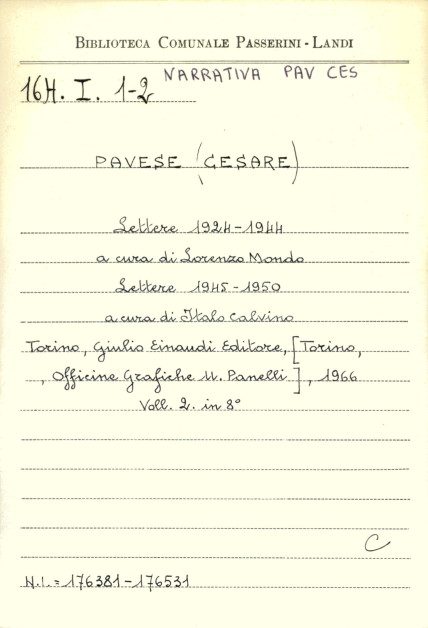 BIBLIOTECA COMUNALE PASSERINI-LANDI
NARRATIVA PAV CES
16H. I. 1-2
PAVESE (CESARE)
Lettere 1924-1944
a cura di Lorenzo Mondo
Lettere 1945-1950
a cura di Italo Calvino
Torino, Giulio Einaudi Editore, [Torino,
, Officine Grafiche U. Panelli], 1966
Voll. 2. in 8°
C
N.I. = 176381-176531